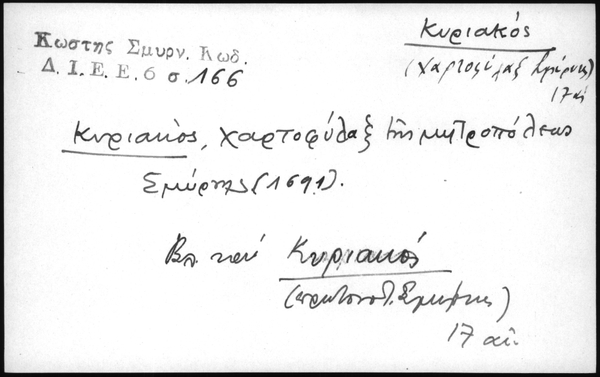 Κωστης Σμυρν. Κωδ.
Δ. Ι. Ε. Ε. 6 σ. 166
Κυριακός
(χαρτοφύλαξ Σμύρνης)
17 αἰ
Κυριακὸς, χαρτοφύλαξ τῆς μητροπόλεως
Σμύρνης (1691).
Βλ. καὶ Κυριακός
(πρωτονοτ. Σμύρνης)
17 αἰ.